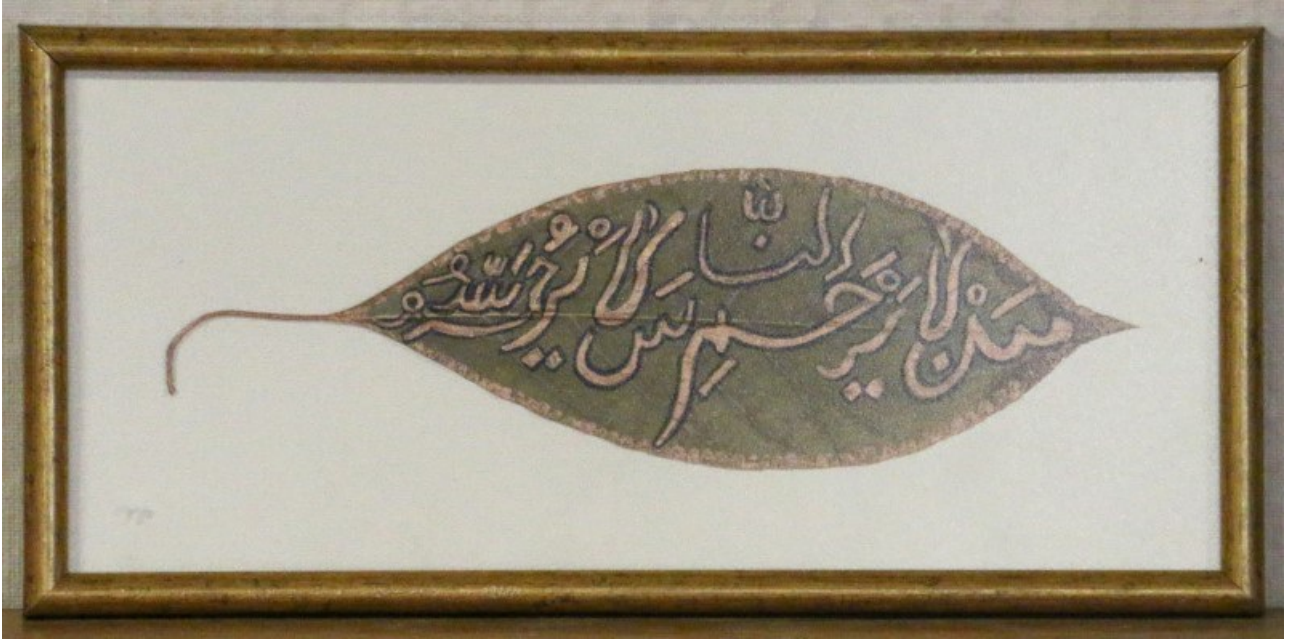 من لا يرحم الناس لا يرحمه الله